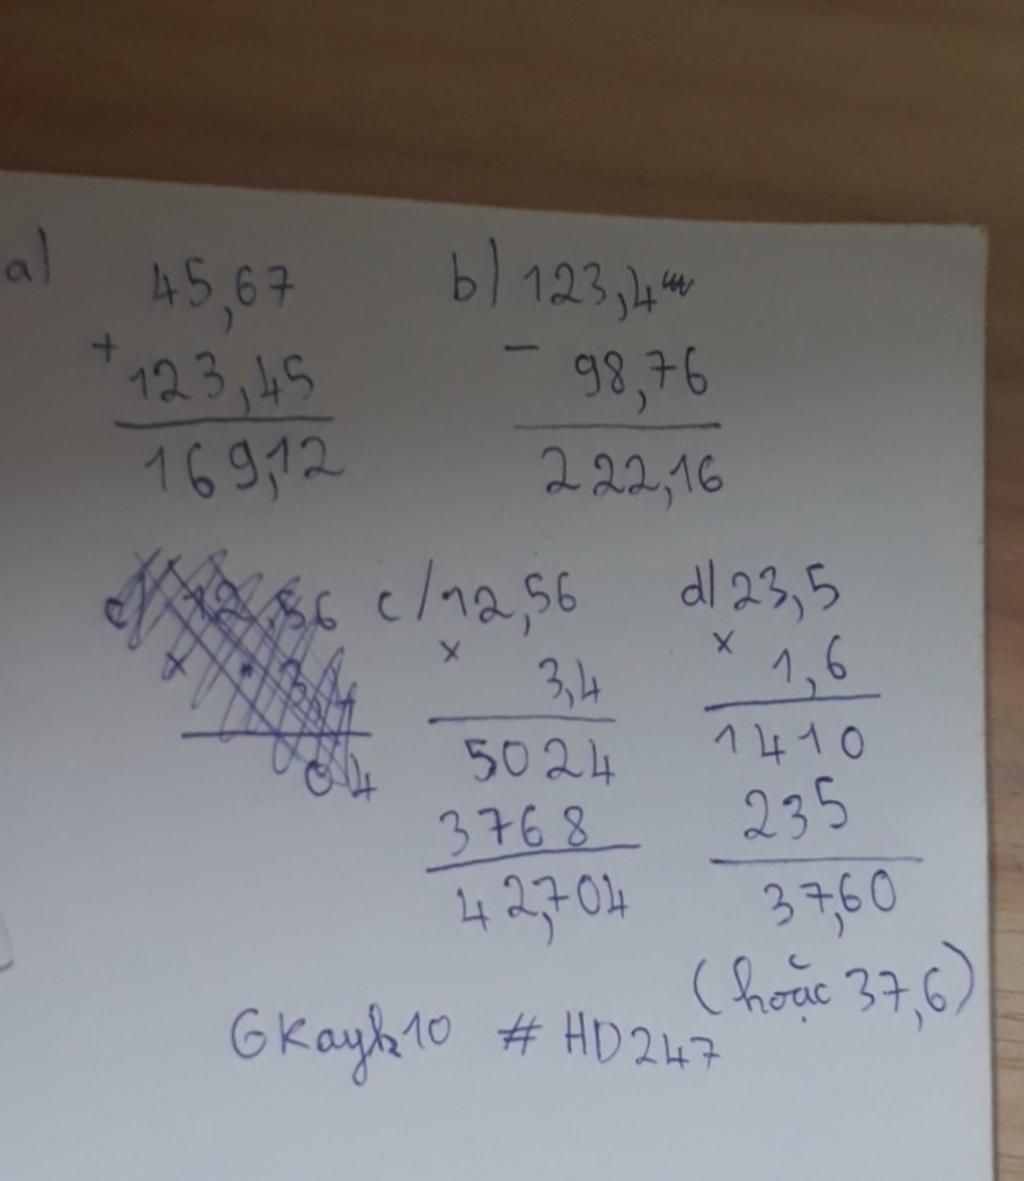 a) 45,67
+
123,45
169,12
b) 123,4
-
98,76
222,16
c) 12,56
x
3,4
04
c/ 12,56
x
3,4
5024
3768
42,704
d/ 23,5
x
1,6
1410
235
37,60
(hoặc 37,6)
GKayk10 # HD247